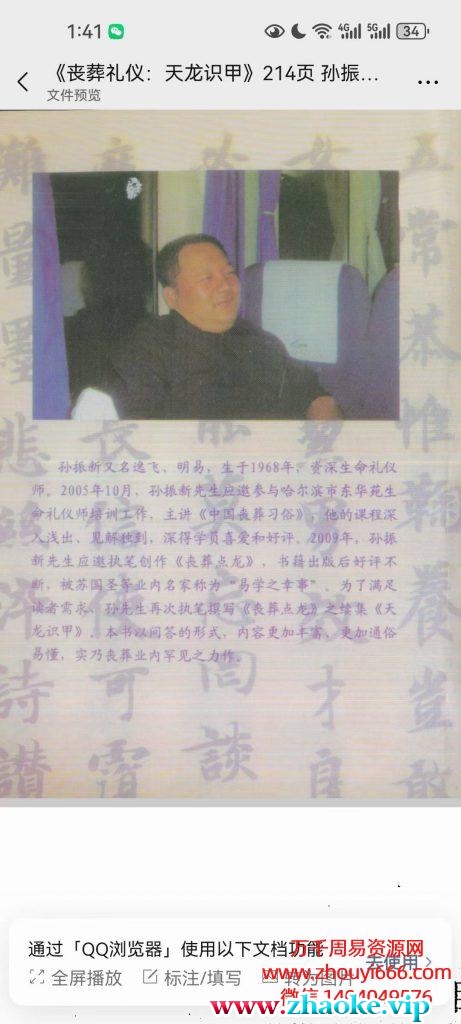 1:41
4G 5G 34
《丧葬礼仪：天龙识甲》214页 孙振...
文件预览
五常恭惟鞠養豈敢
女
才良
忘
談
可
難量墨悲絲
詩讚
孙振新又名逸飞、明易，生于1968年，资深生命礼仪
师。2005年10月，孙振新先生应邀参与哈尔滨市东华苑生
命礼仪师培训工作，主讲《中国丧葬习俗》，他的课程深
入浅出、见解独到，深得学员喜爱和好评。2009年，孙振
新先生应邀执笔创作《丧葬点龙》，书籍出版后好评不
断，被苏国圣等业内名家称为“易学之幸事”。为了满足
读者需求，孙先生再次执笔撰写《丧葬点龙》之续集《天
龙识甲》。本书以问答的形式，内容更加丰富、更加通俗
易懂，实乃丧葬业内罕见之力作。
通过「QQ浏览器」使用以下文档功能
去使用
全屏播放 标注/填写 转为图片
万千周易资源网
www.zhouyi666.com
微信1494049576
www.zhaoke.vip